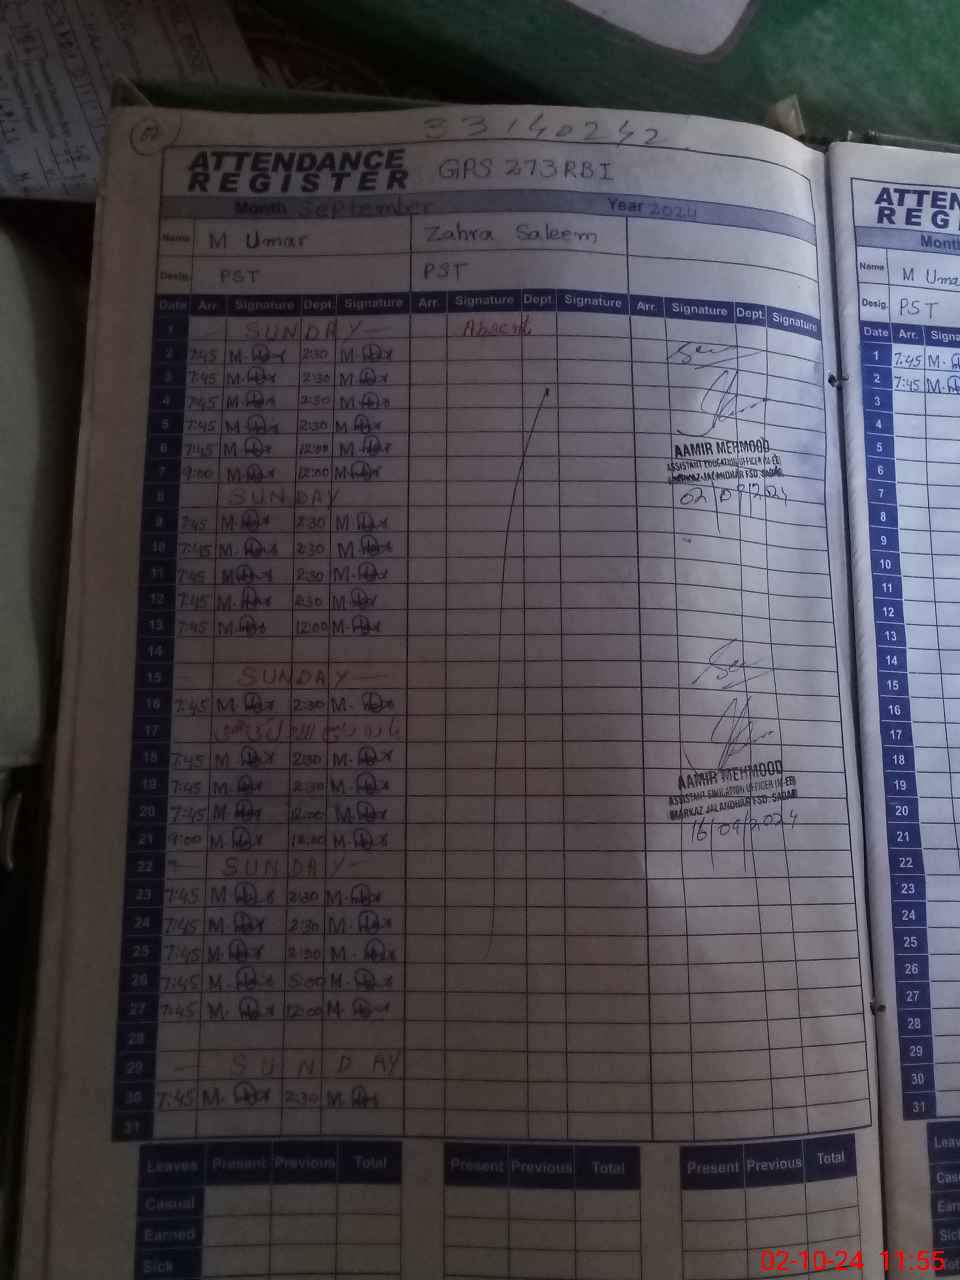 07
33140242
ATTENDANCE REGISTER GPS 273 RBI
Month September Year 2024
Name M Umar Zahra Saleem
Desig. PST PST
Date Arr. Signature Dept. Signature Arr. Signature Dept. Signature Arr. Signature Dept. Signature
1 SUNDAY Absent
2 7:45 2:30
3 7:45 2:30
4 7:45 2:30
5 7:45 2:30
6 7:45 12:00
7 9:00 12:00
AAMIR MEHMOOD
ASSISTANT EDUCATION OFFICER (M-EE)
MARKAZ JALANDHAR FSD. SADAR
02/09/2024
8 SUNDAY
9 7:45 2:30
10 7:45 2:30
11 7:45 2:30
12 7:45 2:30
13 7:45 12:00
14
15 SUNDAY
16 7:45 2:30
17
18 7:45 2:30
19 7:45 2:30
20 7:45 12:00
21 9:00 12:00
AAMIR MEHMOOD
ASSISTANT EDUCATION OFFICER (M-EE)
MARKAZ JALANDHAR FSD. SADAR
16/09/2024
22 SUNDAY
23 7:45 2:30
24 7:45 2:30
25 7:45 2:30
26 7:45 5:00
27 7:45 12:00
28
29 SUNDAY
30 7:45 2:30
31
Leaves Present Previous Total Present Previous Total Present Previous Total
Casual
Earned
Sick
ATTEN
REG
Month
Name M Uma
Desig. PST
Date Arr. Signa
1 7:45
2 7:45
3
4
5
6
7
8
9
10
11
12
13
14
15
16
17
18
19
20
21
22
23
24
25
26
27
28
29
30
31
Leav
Cas
Earn
Sic
02-10-24 11:55